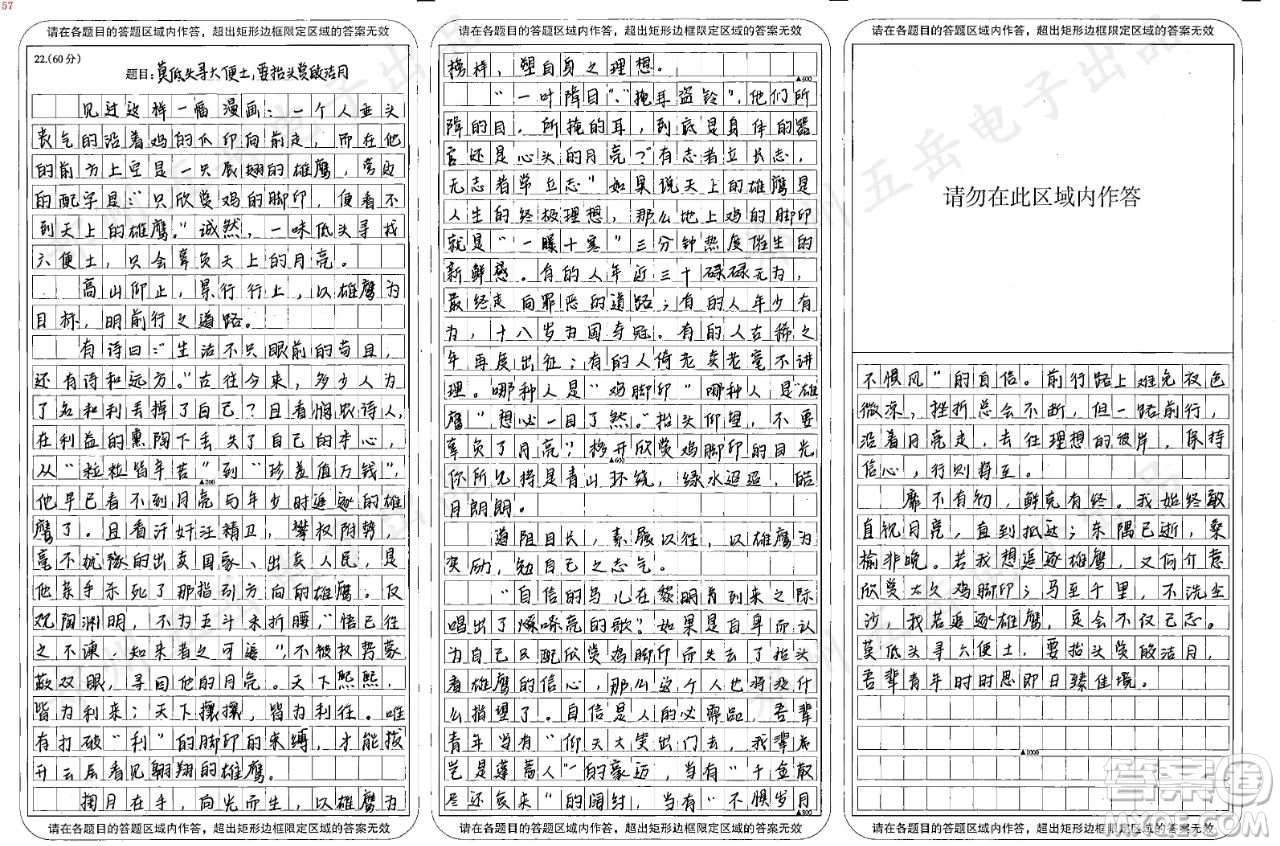 57
请在各题目的答题区域内作答，超出矩形边框限定区域的答案无效
22.(60分)
题目：莫低头寻六便士，要抬头赏皎洁月
见过这样一幅漫画：一个人垂头
丧气的沿着鸡的爪印向前走，而在他
的前方上空是一只展翅的雄鹰，旁边
的配字是：“只欣赏鸡的脚印，便看不
到天上的雄鹰。”诚然，一味低头寻找
六便士，只会辜负天上的月亮。
高山仰止，景行行止，以雄鹰为
目标，明前行之道路。
有诗曰：“生活不只眼前的苟且，
还有诗和远方。”古往今来，多少人为
了名和利丢掉了自己？且看悯农诗人，
在利益的熏陶下丢失了自己的本心，
从“粒粒皆辛苦”到“珍羞值万钱”，
▲200
他早已看不到月亮与年少时追逐的雄
鹰了。且看汗奸汪精卫，攀权附势，
毫不犹豫的出卖国家、出卖人民，是
他亲手杀死了那指引方向的雄鹰。反
观陶渊明，不为五斗米折腰，“悟已往
之不谏，知来者之可追”，不被权势蒙
蔽双眼，寻回他的月亮。天下熙熙，
皆为利来；天下攘攘，皆为利往。唯
有打破“利”的脚印的束缚，才能拨
开云层看见翱翔的雄鹰。
掬月在手，向光而生，以雄鹰为
请在各题目的答题区域内作答，超出矩形边框限定区域的答案无效
请在各题目的答题区域内作答，超出矩形边框限定区域的答案无效
榜样，塑自身之理想。
▲400
“一叶障目”、“掩耳盗铃”，他们所
障的目，所掩的耳，到底是身体的器
官还是心头的月亮？“有志者立长志，
无志者常立志”如果说天上的雄鹰是
人生的终极理想，那么地上鸡的脚印
就是“一曝十寒”三分钟热度催生的
新鲜感。有的人年近三十碌碌无为，
最终走向罪恶的道路；有的人年少有
为，十八岁为国夺冠。有的人古稀之
年再度出征；有的人倚老卖老毫不讲
理。哪种人是“鸡脚印”哪种人是“雄
鹰”想必一目了然。“抬头仰望，不要
辜负了月亮”，移开欣赏鸡脚印的目光
▲600
你所见将是青山环绕，绿水迢迢，皓
月朗朗。
道阻且长，素履以往，以雄鹰为
奖励，勉自己之志气。
“自信的鸟儿在黎明有到来之际
唱出了嘹亮的歌？如果是自卑而认
为自己只配欣赏鸡脚印而失去了抬头
看雄鹰的信心，那么这个人也将没什
么指望了。自信是人的必需品，吾辈
青年当有“仰天大笑出门去，我辈
岂是蓬蒿人”的豪迈，当有“千金散
尽还复来”的阔绰，当有“不惧岁月
▲800
请在各题目的答题区域内作答，超出矩形边框限定区域的答案无效
请在各题目的答题区域内作答，超出矩形边框限定区域的答案无效
请勿在此区域内作答
不惧风”的自信。前行路上难免夜色
微凉，挫折总会不断，但一路前行，
沿着月亮走，去往理想的彼岸，保持
信心，行则将至。
靡不有初，鲜克有终。我始终敢
直视月亮，直到抵达；东隅已逝，桑
榆非晚。若我想追逐雄鹰，又何介意
欣赏太久鸡脚印；马至千里，不洗尘
沙，我若追逐雄鹰，定会不仅己志。
莫低头寻六便士，要抬头赏皎洁月，
吾辈青年时时思即日臻佳境。
▲1000
请在各题目的答题区域内作答，超出矩形边框限定区域的答案无效
答案圈